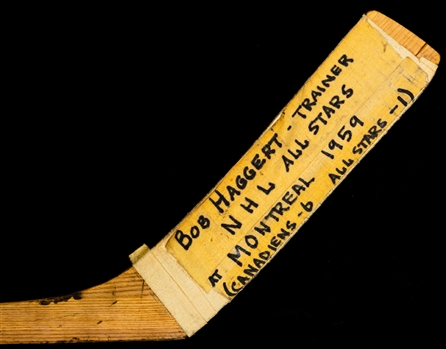 BOB HAGGERT - TRAINER
NHL ALL STARS
AT MONTREAL 1959
(CANADIENS-6 ALL STARS-1)